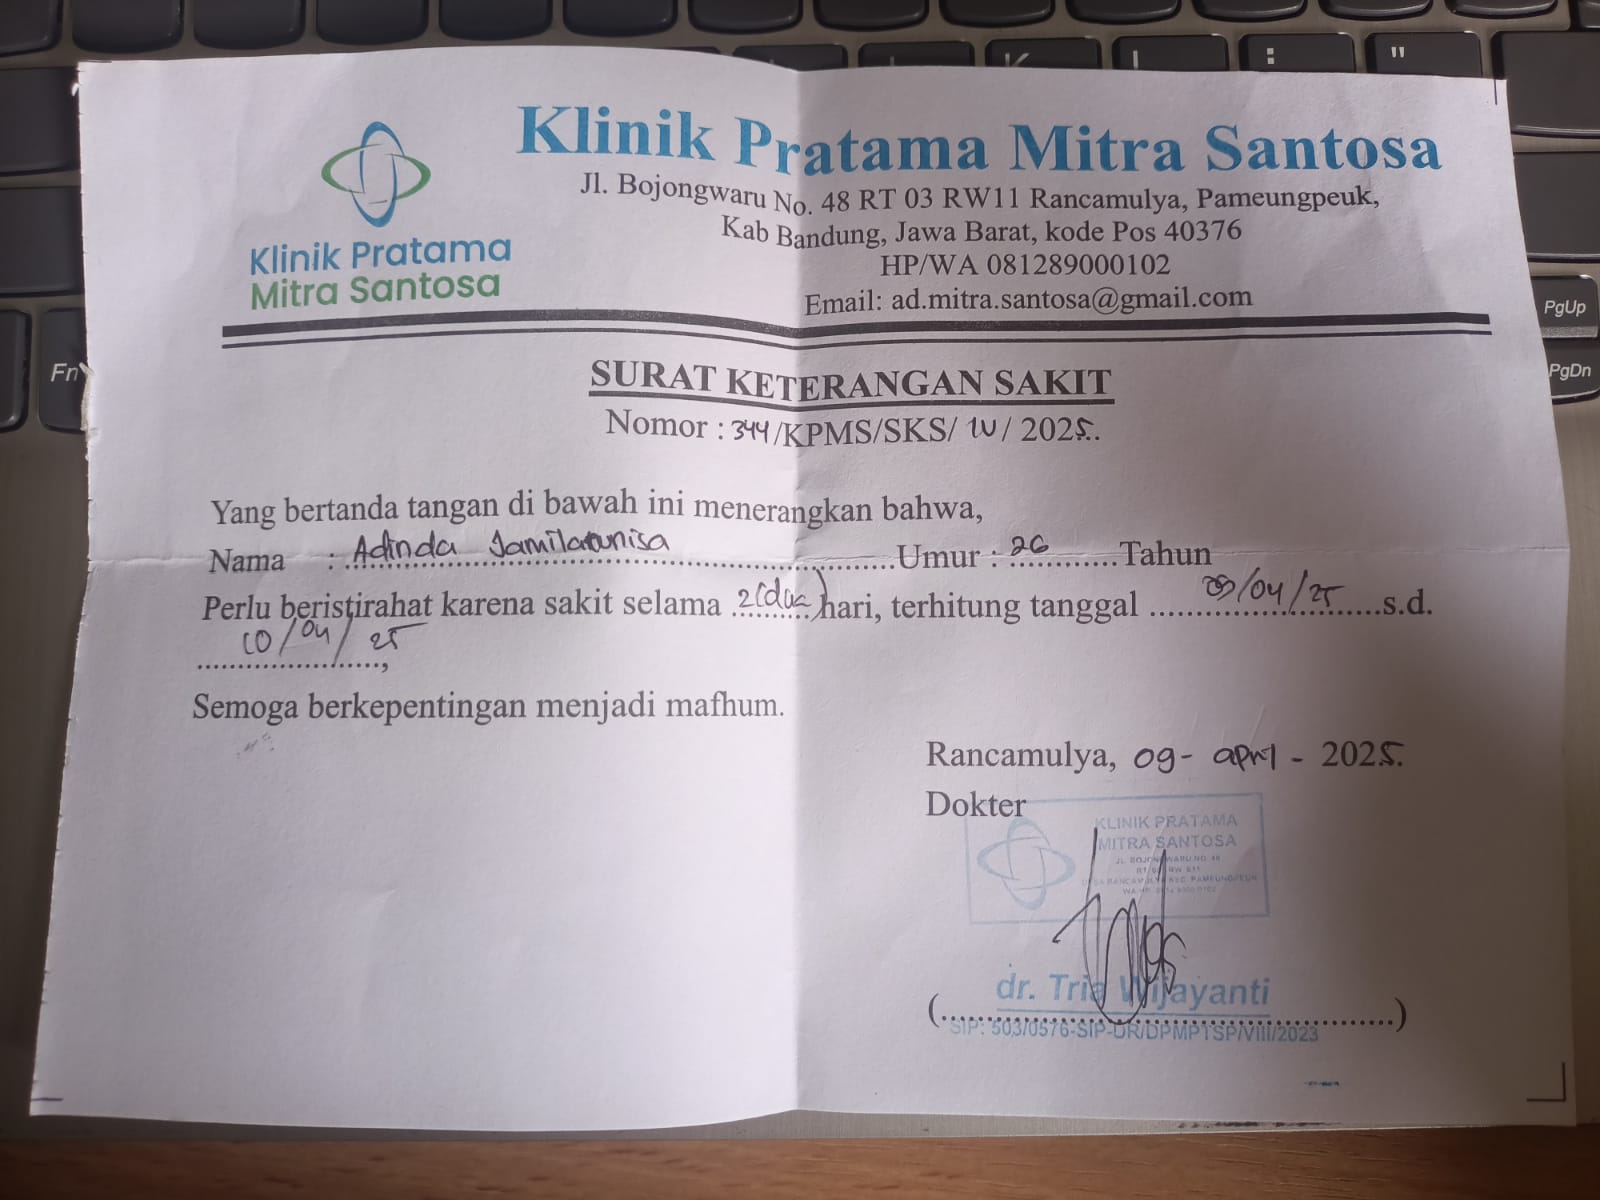 Klinik Pratama Mitra Santosa
Jl. Bojongwaru No. 48 RT 03 RW11 Rancamulya, Pameungpeuk,
Kab Bandung, Jawa Barat, kode Pos 40376
HP/WA 081289000102
Email: ad.mitra.santosa@gmail.com
Klinik Pratama
Mitra Santosa
SURAT KETERANGAN SAKIT
Nomor : 344/KPMS/SKS/ IV / 2025.
Yang bertanda tangan di bawah ini menerangkan bahwa,
Nama : Adinda Jamilatunisa Umur : 26 Tahun
Perlu beristirahat karena sakit selama 2(dua) hari, terhitung tanggal 09/04/25 s.d.
10/04/25,
Semoga berkepentingan menjadi mafhum.
Rancamulya, 09- april - 2025.
Dokter
KLINIK PRATAMA
MITRA SANTOSA
dr. Tria Wijayanti
(........................)
SIP: 503/0576-SIP-DR/DPMPTSP/VIII/2023
K
L
:
"
PgUp
PgDn
Fn